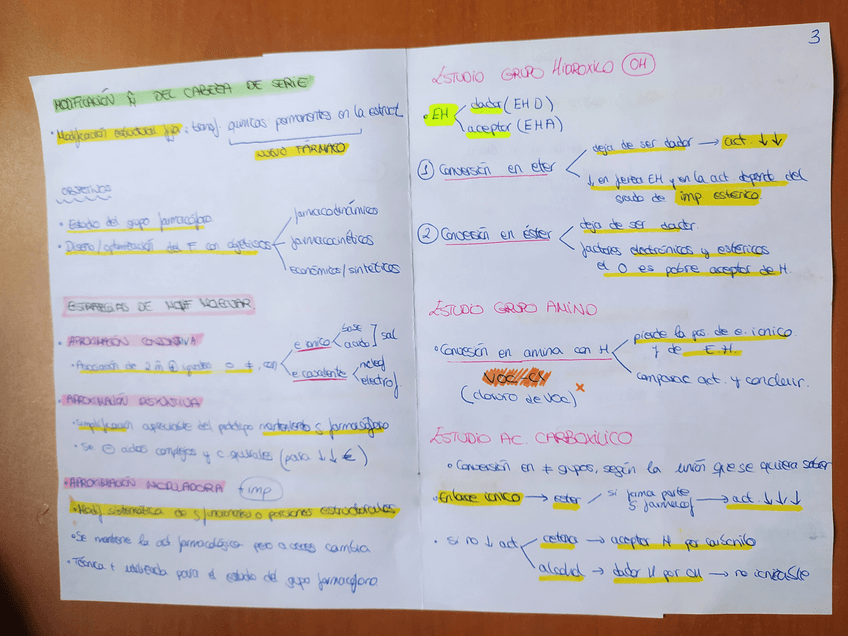 MODIFICACIÓN DEL CABEZA DE SERIE
• Modificación estructural fija: transf químicas permanentes en la estruct
NUEVO FÁRMACO
OBJETIVOS
• Estudio del grupo farmacóforo.
• Diseño/optimización del F con objetivos
farmacodinámicos
farmacocinéticos
económicos/sintéticos
ESTRATEGIAS DE MODIF MOLECULAR
• APROXIMACIÓN CONJUNTIVA
• Asociación de 2 iguales o ≠, con
e iónico
base
ácido
] sal
e covalente
nucleóf
electróf.
• APROXIMACIÓN DISYUNTIVA
• Simplificación del prototipo manteniendo farmacóforo
• Se ⊖ complejos y c. quirales (para ↓↓ €)
• APROXIMACIÓN MODULADORA + imp
• Modif sistemática de funcionales o porciones estructurales
• Se mantiene la act farmacológica pero a veces cambia
• Técnica + utilizada para el estudio del grupo farmacóforo
3
ESTUDIO GRUPO HIDROXILO (OH)
• EH
dador (EHD)
aceptor (EHA)
① Conversión en éter
deja de ser dador → act. ↓↓
↓ en fuerza EH y en la act depende del
grado de imp estérico.
② Conversión en éster
deja de ser dador.
factores electrónicos y estéricos
el O es pobre aceptor de H.
ESTUDIO GRUPO AMINO
• Conversión en amina con H
pierde la pos. de e. iónico
y de E.H.
comparar act. y concluir.
(cloruro de voc) x
ESTUDIO AC. CARBOXÍLICO
• Conversión en ≠ grupos, según la unión que se quiera saber
Enlace iónico → ester / si forma parte
farmacóf → act. ↓↓↓
• si no ↓ act
cetona → aceptor H por carbonilo
alcohol → dador H por OH → no ionizable